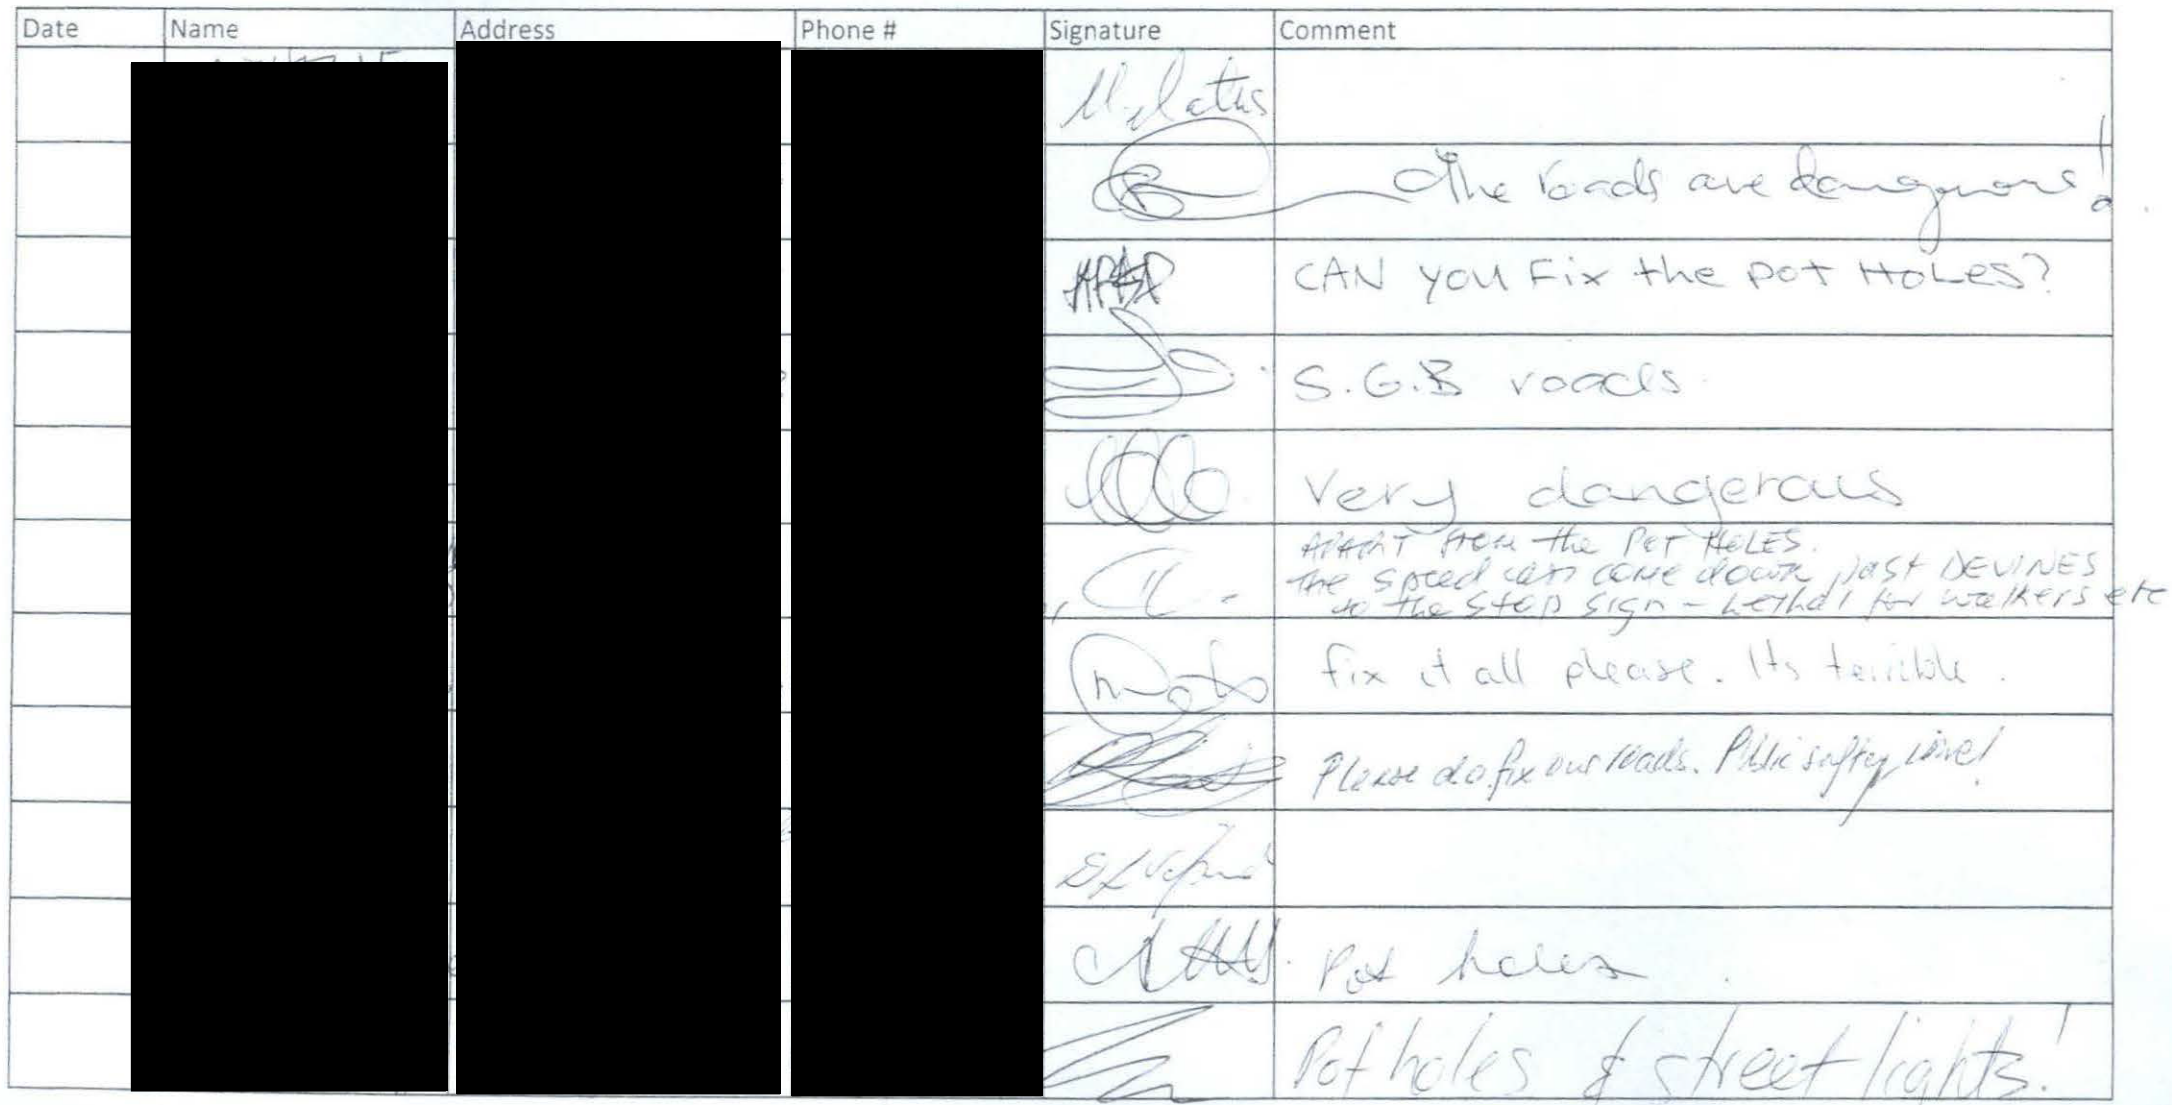 Date Name Address Phone # Signature Comment
The roads are dangerous!
CAN you Fix the pot HoLes?
S.G.B roads
Very dangerous
APART from the POT HOLES.
the speed cars come down past DEVINES
to the stop sign - Lethal for walkers etc
fix it all please. Its terrible.
Please do fix our roads. Public saftey
Pot holes
Pot holes & street lights!